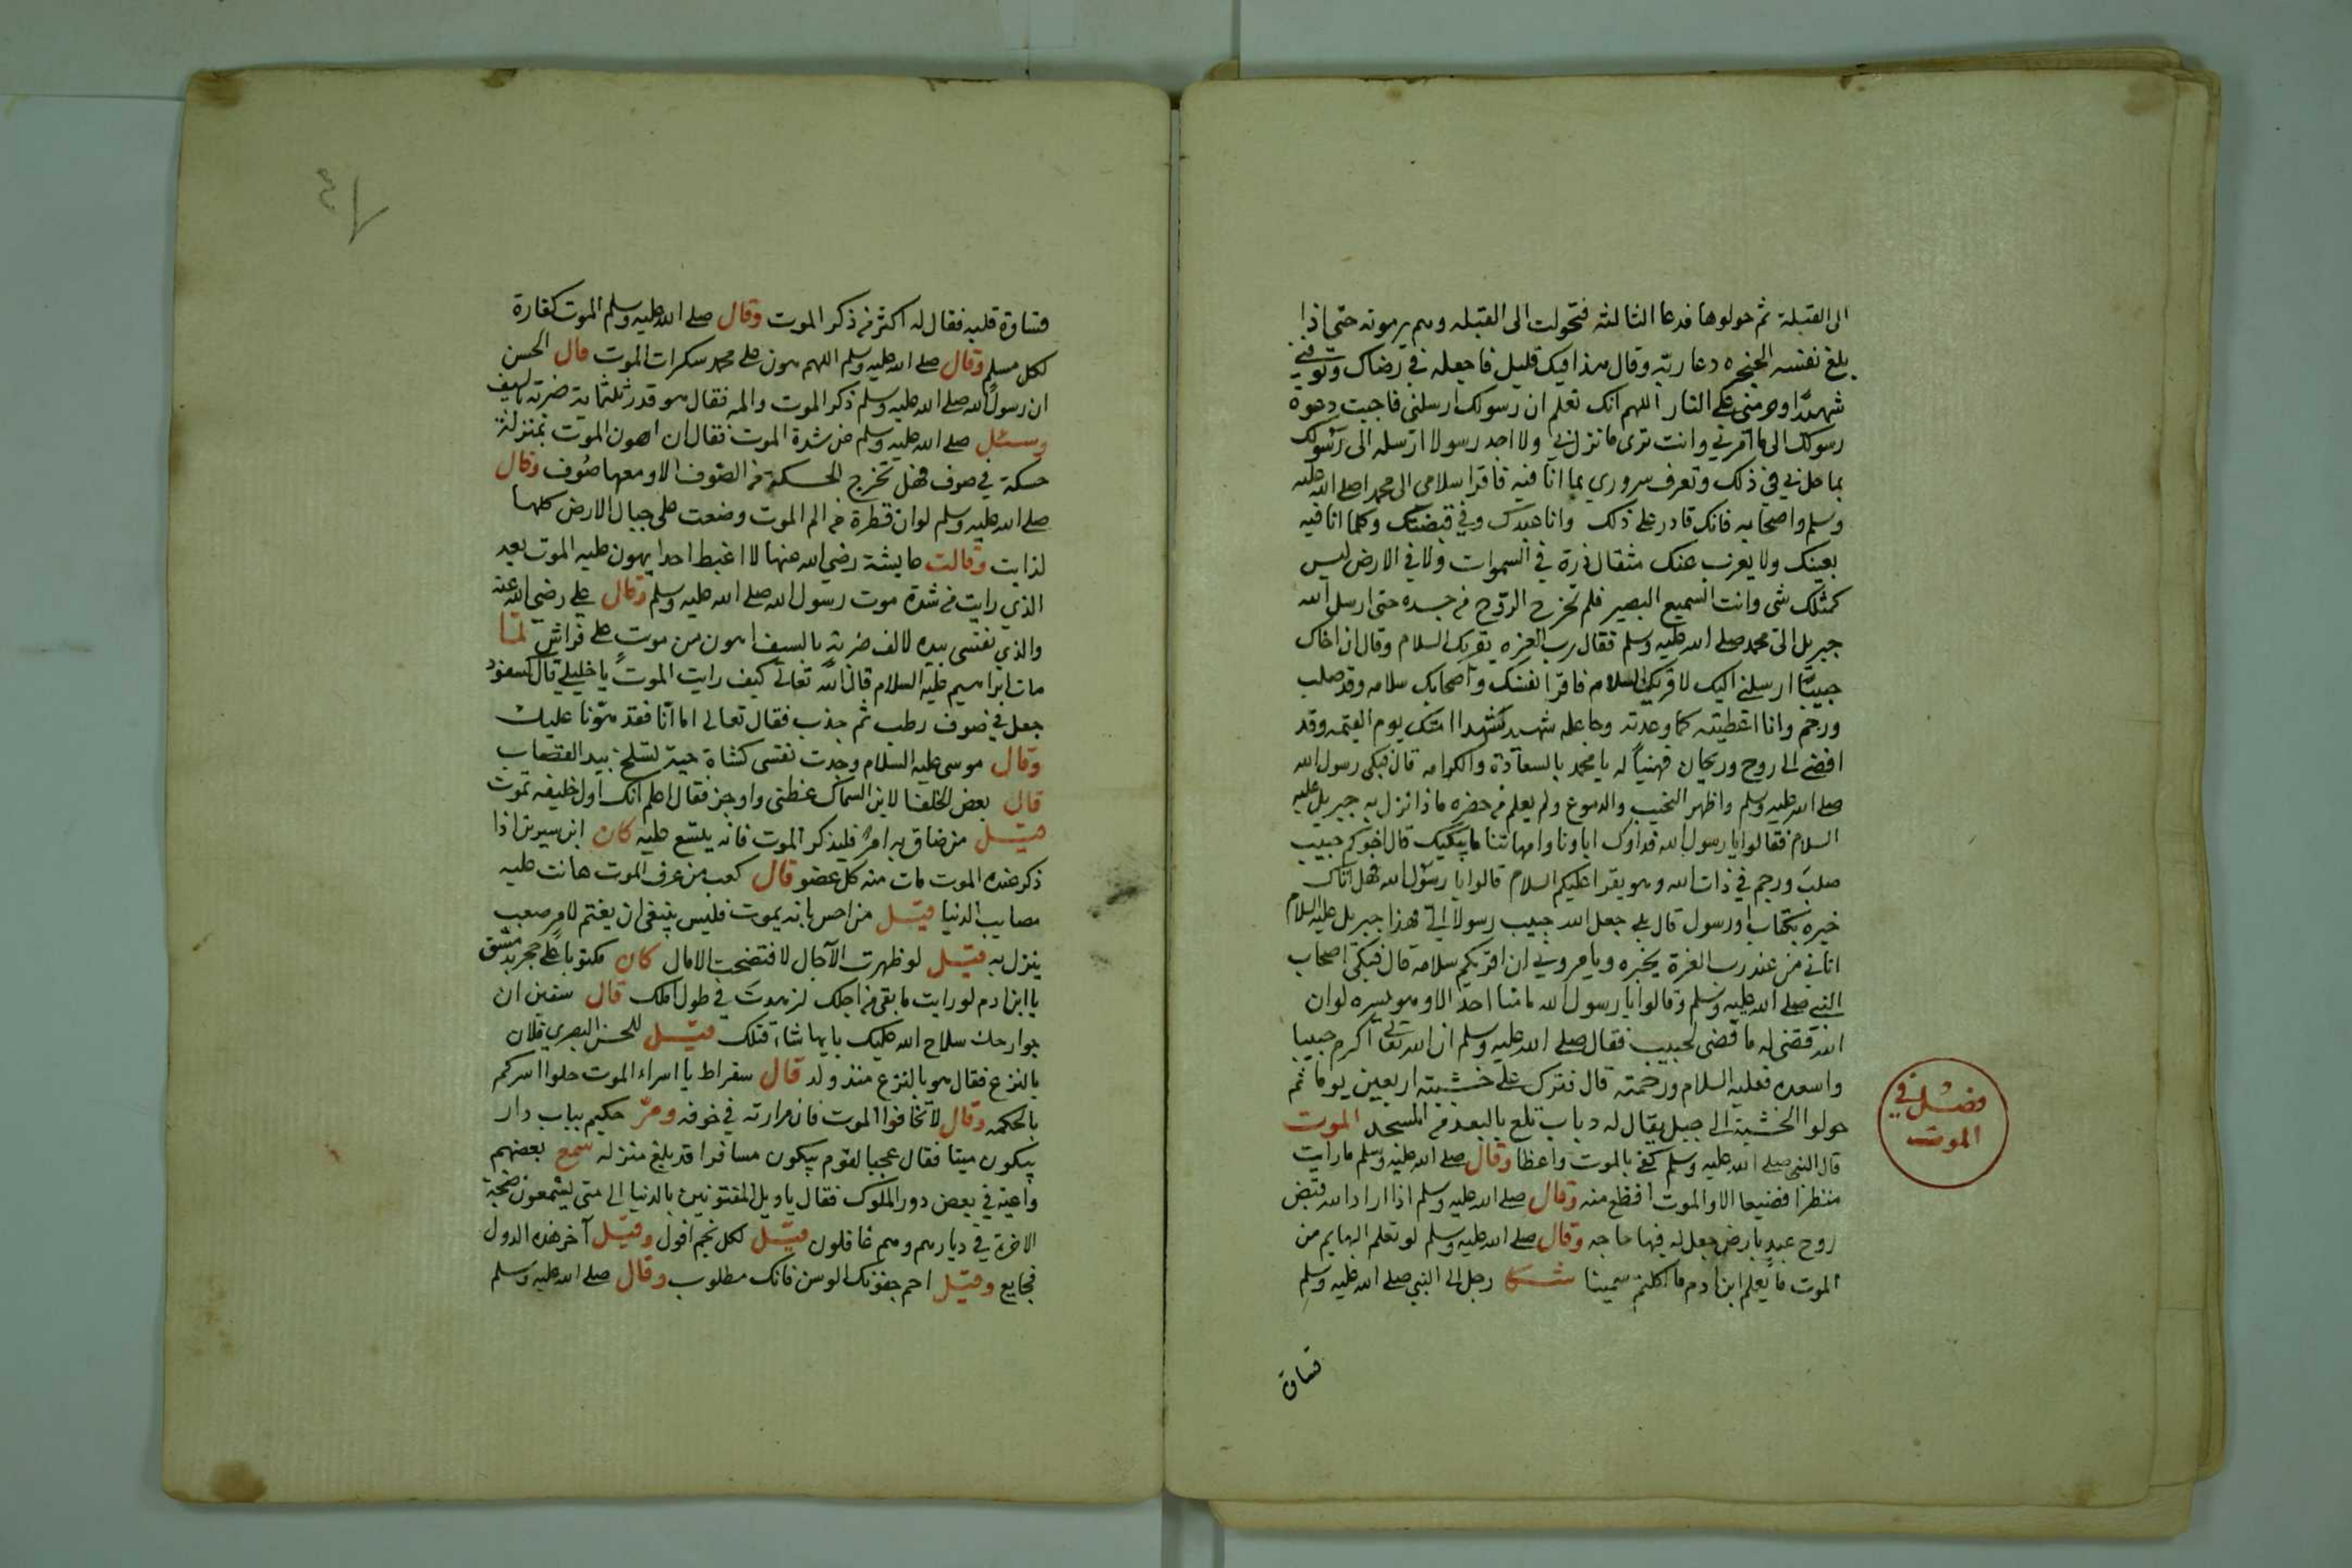 الى القبلة ثم حولوها فدعا الثالثة فتحولت الى القبله وهم يرمونه حتى اذا
بلغ نفسه الحنجره دعا ربّه وقال هذا فيك قليل فاجعله في رضاك وتوفني
شهيدًا وحرمني على النار اللهم انك تعلم ان رسولك ارسلني فاجبت دعوة
رسولك الى ما امرني وانت ترى ما نزل بي ولا اجد رسولا ارسله الى رسولك
بما حل بي في ذلك وتعرف سروري بما انا فيه فاقرا سلامي الى محمد صلى الله عليه
وسلم واصحابه فانك قادر على ذلك وانا عبدك وفي قبضتك وكلما انا فيه
بعينك ولا يعزب عنك مثقال ذرة في السموات ولا في الارض ليس
كمثلك شي وانت السميع البصير فلم تخرج الروح من جسده حتى ارسل الله
جبريل الى محمد صلى الله عليه وسلم فقال رب العزه يقريك السلام وقال ان اخاك
حبيبًا ارسلني اليك لاقريك السلام فاقرا نفسك واصحابك سلامه وقد صلب
ورجم وانا اعطيته كما وعدته وجاعله شهيد كشهدا امتك يوم القيمه وقد
افضى الى روح وريحان فهنيًا له يا محمد بالسعادة والكرامه قال فبكى رسول الله
صلى الله عليه وسلم واظهر النحيب والدموع ولم يعلم من حضره ماذا نزل به جبريل عليه
السلام فقالوا يا رسول الله فداوك اباونا وامهاتنا ما يبكيك قال اخوكم حبيب
صلب ورجم في ذات الله وهو يقرا عليكم السلام قالوا يا رسول الله فهل اتاك
خبره بكتاب او رسول قال بلى جعل الله حبيب رسولا الي فهذا جبريل عليه السلام
اتاني من عند رب العزة يخبره ويامروني ان اقريكم سلامه قال فبكى اصحاب
النبي صلى الله عليه وسلم وقالوا يا رسول الله ما منا احد الا وهو يسره لو ان
الله قضى له ما قضى لحبيب فقال صلى الله عليه وسلم ان الله تعالى اكرم حبيبا
واسعده فعليه السلام ورحمته قال فترك على خشبته اربعين يوما ثم
حولوا الخشبة الى جبل يقال له دباب تلع بالبعد من المسجد الموت
قال النبي صلى الله عليه وسلم كفى بالموت واعظا وقال صلى الله عليه وسلم ما رايت
منظرا فضيعا الا والموت افظع منه وقال صلى الله عليه وسلم اذا اراد الله قبض
روح عبد بارض جعل له فيها حاجه وقال صلى الله عليه وسلم لو تعلم البهايم من
الموت ما يعلم ابن ادم ما اكلتم سمينا شكا رجل الى النبي صلى الله عليه وسلم
فصل في
الموت
قساوة
قساوة قلبه فقال له اكثر من ذكر الموت وقال صلى الله عليه وسلم الموت كفارة
لكل مسلم وقال صلى الله عليه وسلم اللهم هون على محمد سكرات الموت قال الحسن
ان رسول الله صلى الله عليه وسلم ذكر الموت والمه فقال هو قدر ثلثماية ضربة بالسيف
وسئل صلى الله عليه وسلم عن شدة الموت فقال ان اهون الموت بمنزلة
حسكة في صوف فهل تخرج الحسكة من الصوف الا ومعها صوف وقال
صلى الله عليه وسلم لو ان قطرة من الم الموت وضعت على جبال الارض كلها
لذابت وقالت عايشة رضي الله عنها لا اغبط احدا يهون عليه الموت بعد
الذي رايت من شدة موت رسول الله صلى الله عليه وسلم وقال علي رضي الله عنه
والذي نفسي بيده لالف ضربةٍ بالسيف اهون من موتٍ على فراش لمّا
مات ابراهيم عليه السلام قال الله تعالى كيف رايت الموت يا خليلي قال كسفود
جعل في صوف رطب ثم جذب فقال تعالى اما انا فقد هونا عليك
وقال موسى عليه السلام وجدت نفسي كشاة حية تسلخ بيد القصاب
قال بعض الخلفا لابن السماك عظني واوجز فقال اعلم انك اول خليفه تموت
قيل من ضاق به امر فليذكر الموت فانه يتسع عليه كان ابن سيرين اذا
ذكر عنده الموت مات منه كل عضو قال كعب من عرف الموت هانت عليه
مصايب الدنيا قيل من احس بانه يموت فليس ينبغي ان يغتم لامر صعب
ينزل به قيل لو ظهرت الآجال لافتضحت الامال كان مكتوبا على حجر بدمشق
يا ابن ادم لو رايت ما بقي من اجلك لزهدت في طول املك قال سفين ان
جوارحك سلاح الله عليك بايها شاء قتلك قيل للحسن البصري فلان
بالنزع فقال هو بالنزع منذ ولد قال سقراط يا اسراء الموت حلوا اسركم
بالحكمه وقال لا تخافوا الموت فان مرارته في خوفه ومرّ حكيم بباب دار
يبكون ميتا فقال عجبا لقوم يبكون مسافرا قد بلغ منزله سمع بعضهم
واعية في بعض دور الملوك فقال يا ويل المفتونين بالدنيا الى متى يسمعون صيحة
الاخرة في ديارهم وهم غافلون قيل لكل نجم افول وقيل آخر هذه الدول
فجايع وقيل احم جفونك الوسن فانك مطلوب وقال صلى الله عليه وسلم